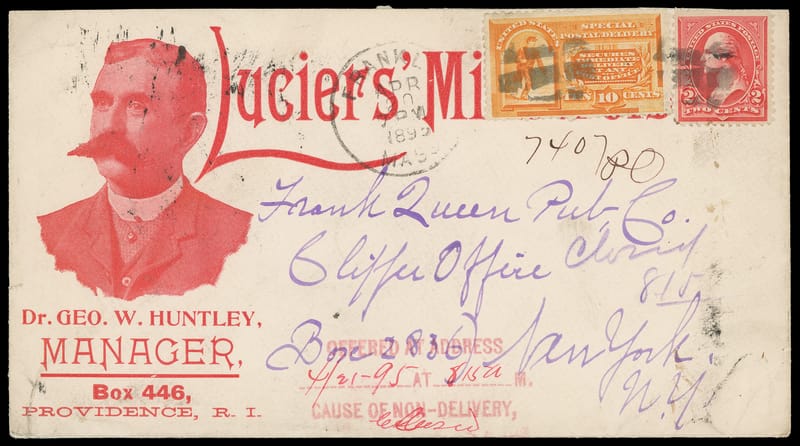 Lucier's Mi
UNITED STATES
SPECIAL
POSTAL DELIVERY
SECURES
IMMEDIATE
DELIVERY
AT ANY
POST OFFICE
TEN 10 CENTS
UNITED STATES POSTAGE
2 2
TWO CENTS
FRANKLIN
APR
PM
1895
MASS
7407
Frank Queen Pub Co.
Cliffer Office Closed
815
Box 2836 New York.
N.Y
Dr. GEO. W. HUNTLEY,
MANAGER,
Box 446,
PROVIDENCE, R. I.
OFFERED AT ADDRESS
4/21-95 AT 815 a M.
CAUSE OF NON-DELIVERY,
Closed